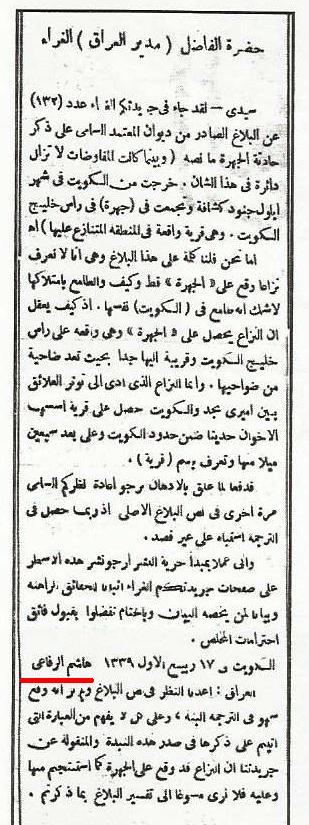 حضرة الفاضل ( مدير العراق ) الغراء
سيدى — لقد جاء فى جريدتكم الغراء عدد (١٣٢)
عن البلاغ الصادر من ديوان المعتمد السامى على ذكر
حادثة الجهرة ما نصه ( وبينما كانت المفاوضات لا تزال
دائرة فى هذا الشان . خرجت من الكويت فى شهر
ايلول جنود كشافة وتجمعت فى (جهرة) فى راس خليج
الكويت . وهى قرية واقعة فى المنطقه المتنازع عليها ) اه
اما نحن فلنا كلة على هذا البلاغ وهى انا لا نعرف
نزاعا وقع على « الجهرة » قط وكيف والطامع بامتلاكها
لاشك انه طامع فى ( الكويت ) نفسها . اذ كيف يعقل
ان النزاع يحصل على « الجهرة » وهى واقعه على راس
خليج الكويت وقريبة اليها جدا بحيث تعد ضاحية
من ضواحيها . وانما النزاع الذى ادى الى توتر العلائق
بين اميرى نجد والكويت حصل على قرية اسسها
الاخوان حديثا ضمن حدود الكويت وعلى بعد سبعين
ميلا منها وتعرف بسم ( قرية ) .
فدفعا لما علق بالاذهان نرجو اعادة نظركم السامى
مرة اخرى فى نص البلاغ الاصلى اذ ربما حصل فى
الترجمه اشتباه على غير قصد .
وانى عملا بمبدأ حرية النشر ارجو نشر هذه الاسطر
على صفحات جريدتكم الغراء اثباتا للحقائق الراهنه
وبيانا لمن يخصه البيان . وبالختام تفضلوا بقبول فائق
احترامات المخلص .
الكويت فى ١٧ ربيع الاول ١٣٣٩ هاشم الرفاعى
العراق : اعدنا النظر فى نص البلاغ وقع
سهو فى الترجمه البته ، وعلى لا يفهم من العبارة التى
اتيتم على ذكرها فى صدر هذه النبذة والمنقولة عن
جريدتنا ان النزاع قد وقع على الجهرة كما استنتجتم منها
وعليه فلا نرى مسوغا الى تفسير البلاغ بما ذكرتم .